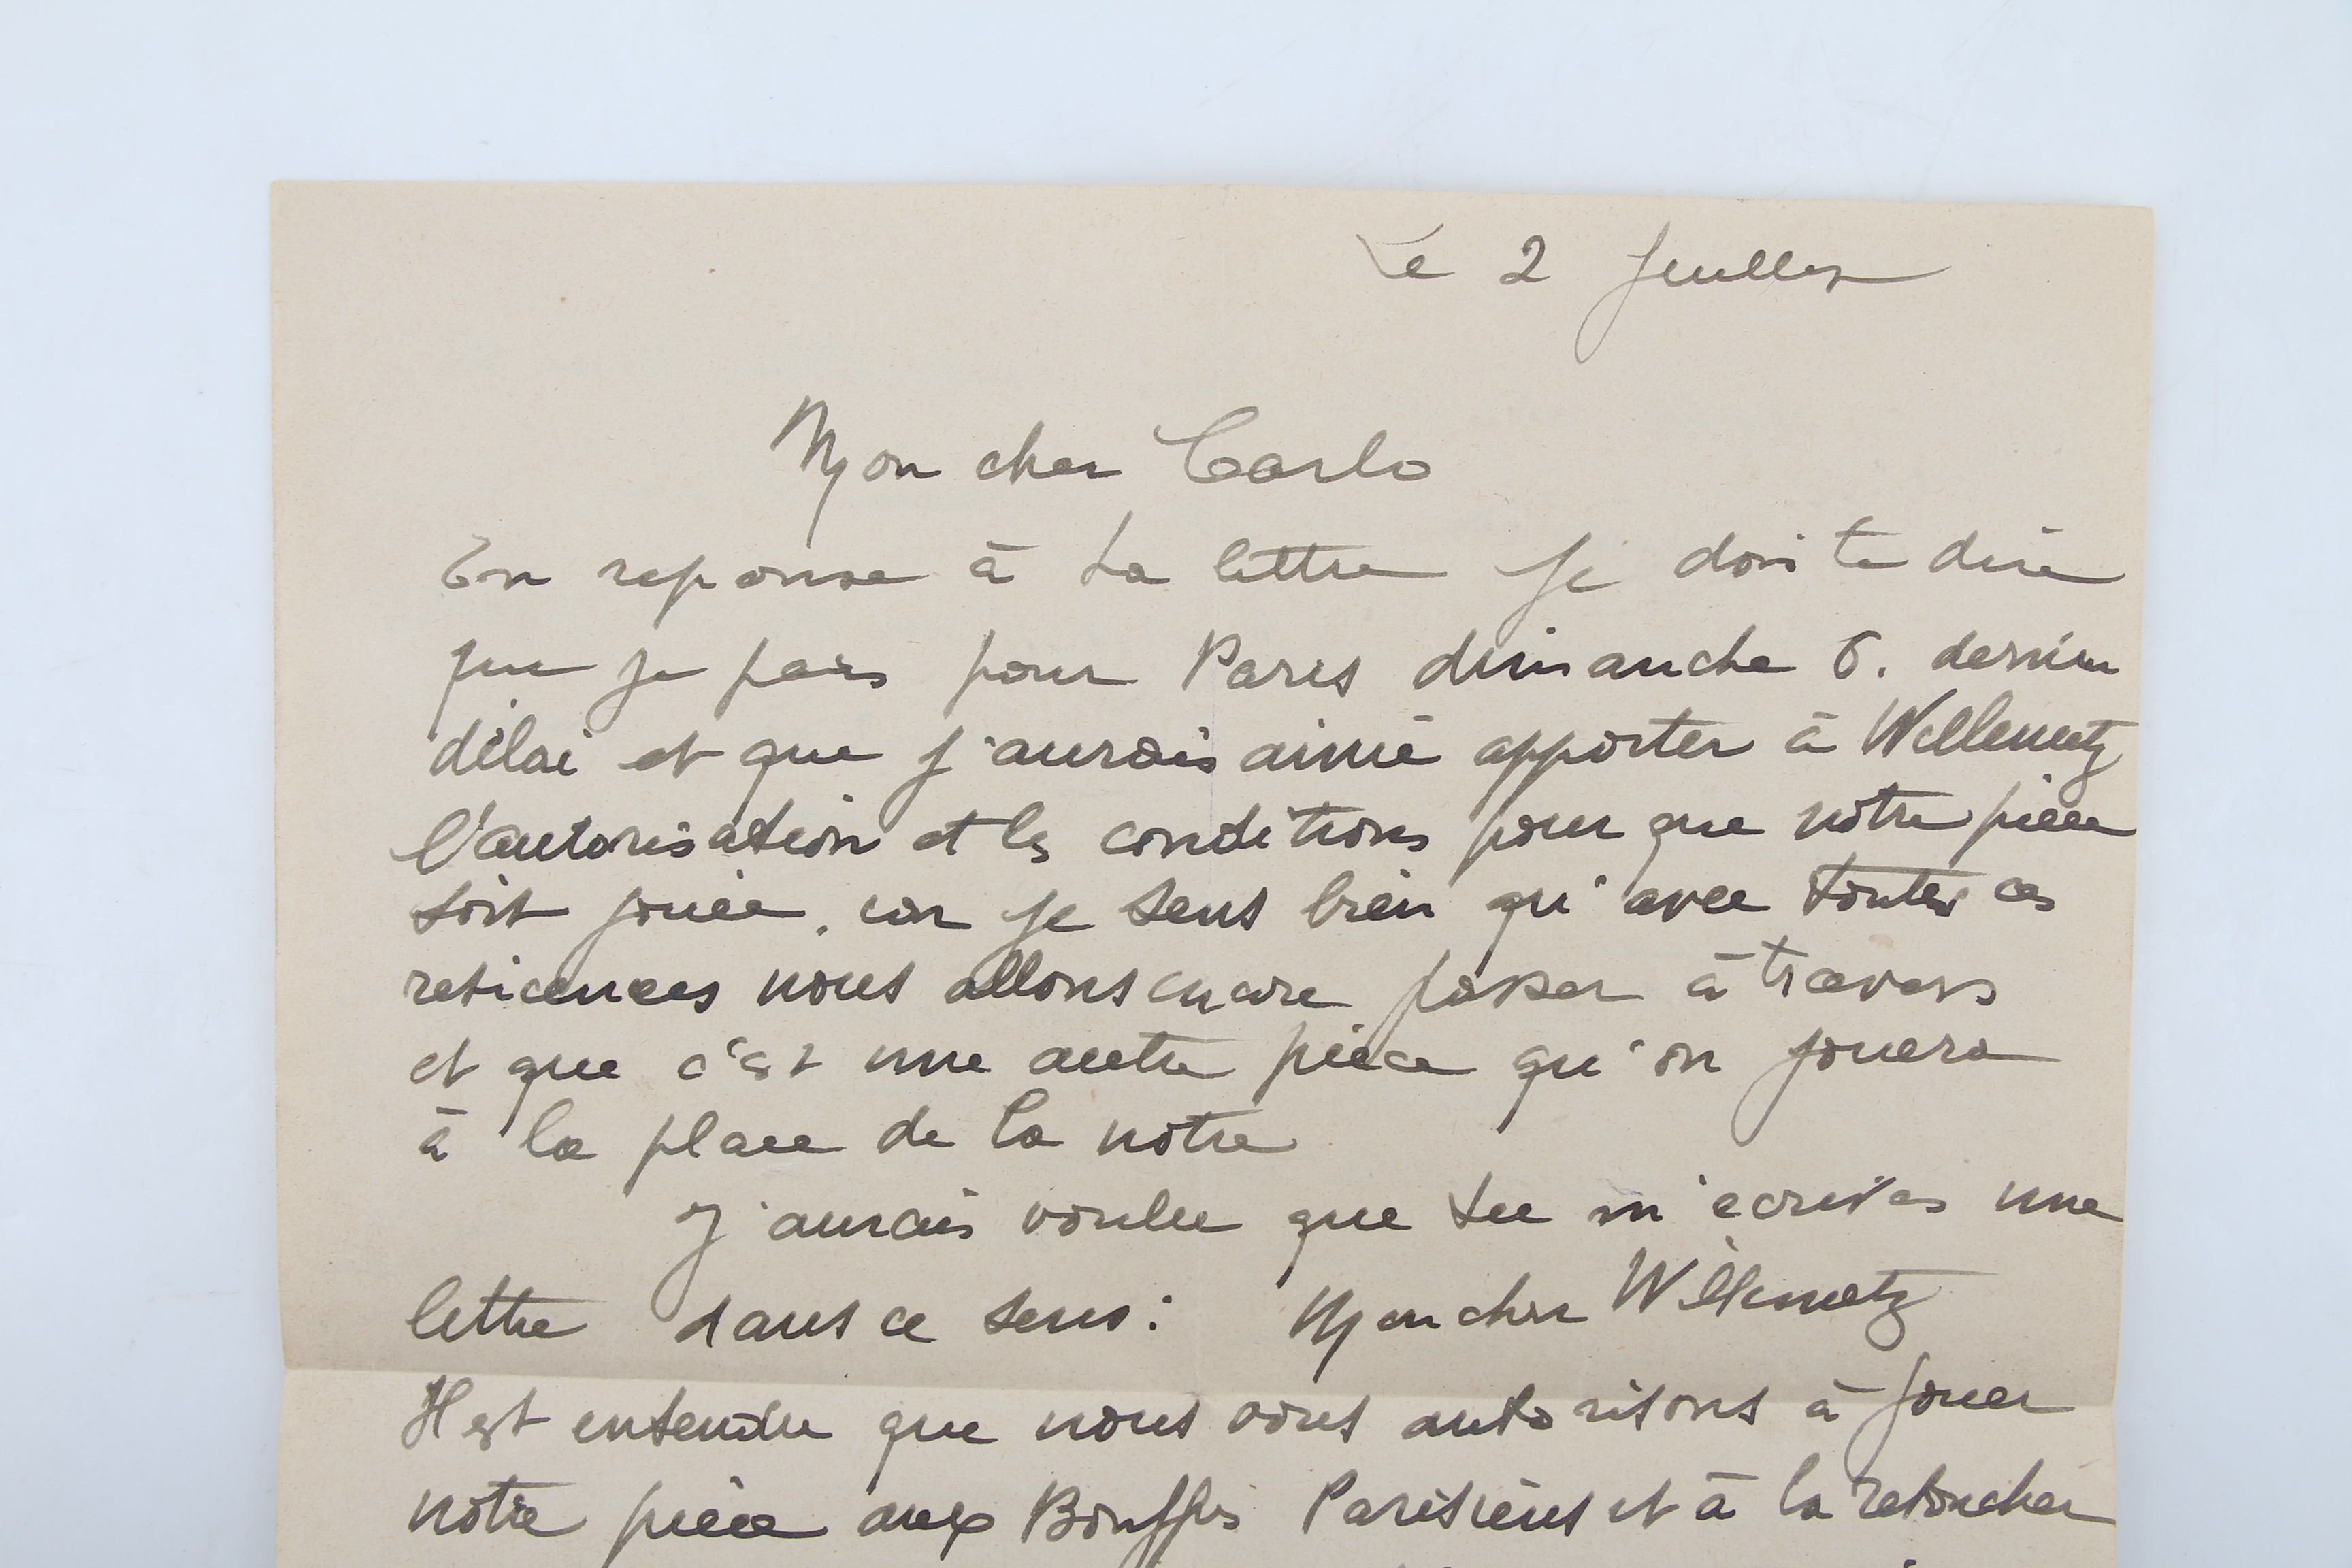 Le 2 Juillet
Mon cher Carlo
En reponse à ta lettre Je dois te dire
que je pars pour Paris dimanche 6. dernier
délai et que j'aurais aimé apporter à Willemetz
l'autorisation et les conditions pour que notre pièce
soit jouée, car je sens bien qu'avec toutes ces
reticences nous allons encore passer à travers
et que c'est une autre pièce qu'on jouera
à la place de la notre
J'aurais voulu que tu m'ecrives une
lettre dans ce sens : Mon cher Willemetz
Il est entendu que nous vous autorisons à jouer
notre pièce aux Bouffes Parisiens et à la retoucher